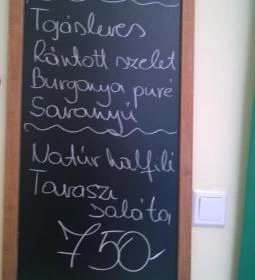 Tojásleves
Rántott szelet
Burgonya püré
Savanyú
Natúr halfilé
Tavaszi
saláta
750-